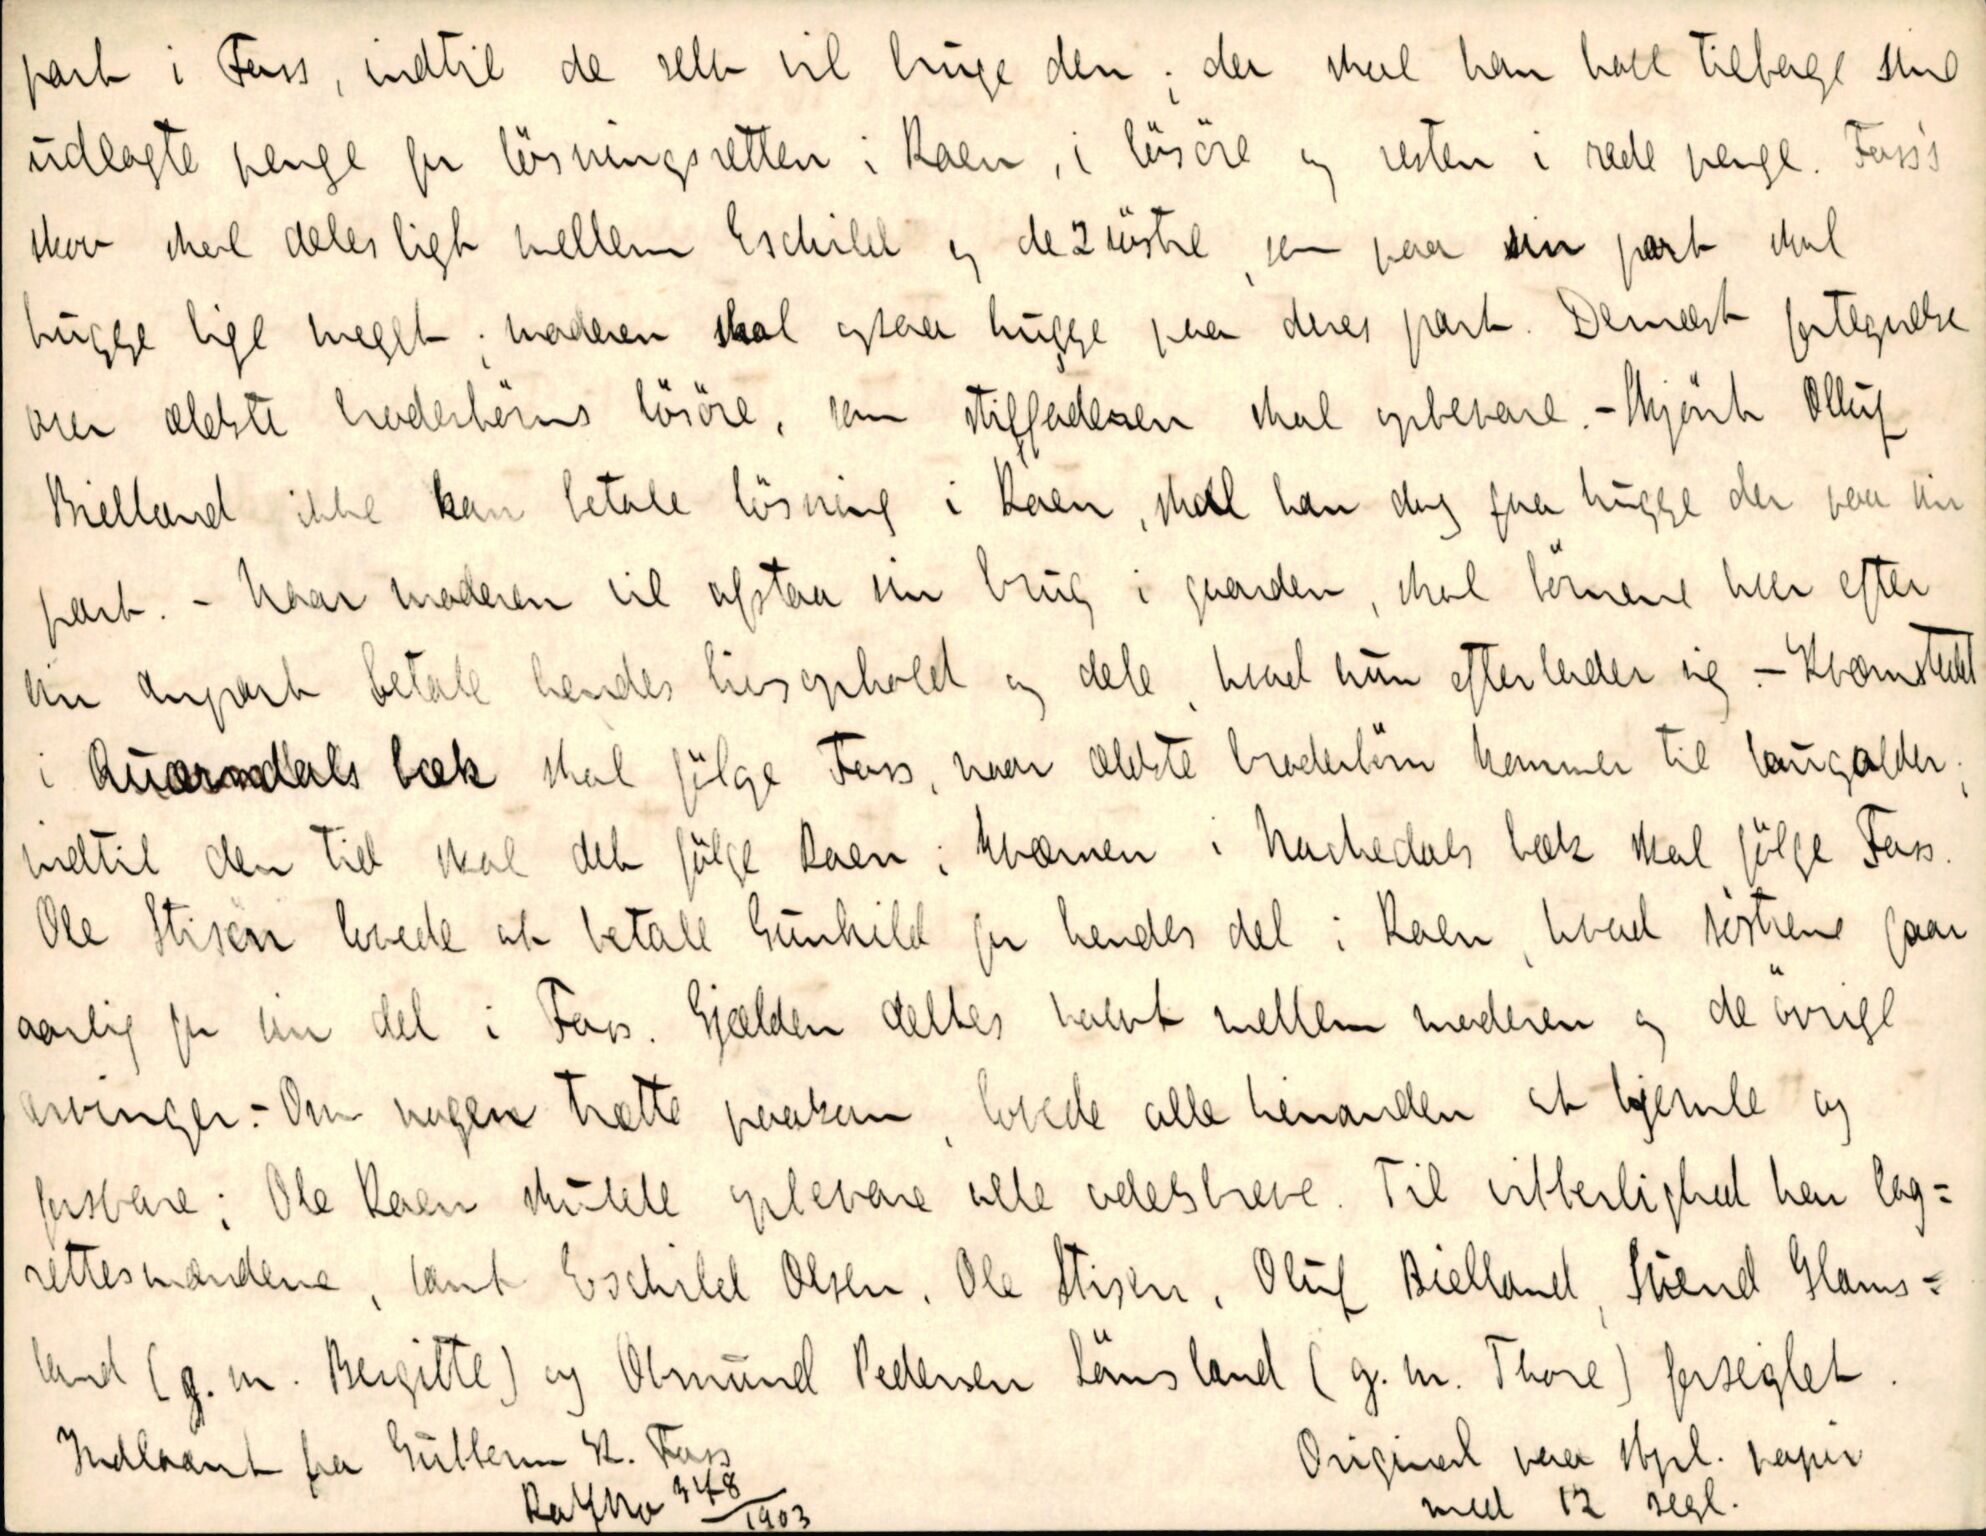 part i Foss, indtil de selv vil bruge den; der skal han have tilbage sine
udlagte penge for løsningsretten i Roen, i løsøre og resten i rede penge. Foss's
skov skal deles ligt mellem Eschild og de 2 søstre, som paa sin part skal
hugge lige meget; moderen skal ogsaa hugge paa deres part. Dernæst fortegnelse
over ældste broderbørns løsøre, som stiffaderen skal opbevare. - Skjønt Olluf
Bielland ikke kan betale løsning i Roen, skal han dog faa hugge der paa sin
part. - Naar moderen vil afstaa sin brug i gaarden, skal børnene hver efter
sin anpart betale hendes livsophold og dele, hvad hun efterlader sig. - Kvernstedet
i Quærndals bæk skal følge Foss, naar ældste broderbørn kommer til laugalder;
indtil den tid skal det følge Roen; kvernen i Nachedals bæk skal følge Foss.
Ole Stisen lovede at betale Gunhild for hendes del i Roen, hvad søstrene faar
aarlig for sin del i Foss. Gjælden deltes halvt mellem moderen og de øvrige
arvinger. - Om nogen trætte paakom, lovede alle hinanden at hjemle og
forsvare; Ole Roen skulde opbevare alle odelsbreve. Til vitterlighed har lag=
rettesmændene, samt Eschild Olsen, Ole Stisen, Oluf Bielland, Svend Glams=
land (g. m. Bergitte) og Osmund Pedersen Lønsland (g. m. Thore) forseglet.
Indlaant fra Guttorm K. Foss
348/1903
Original paa stpl. papir
med 12 segl.